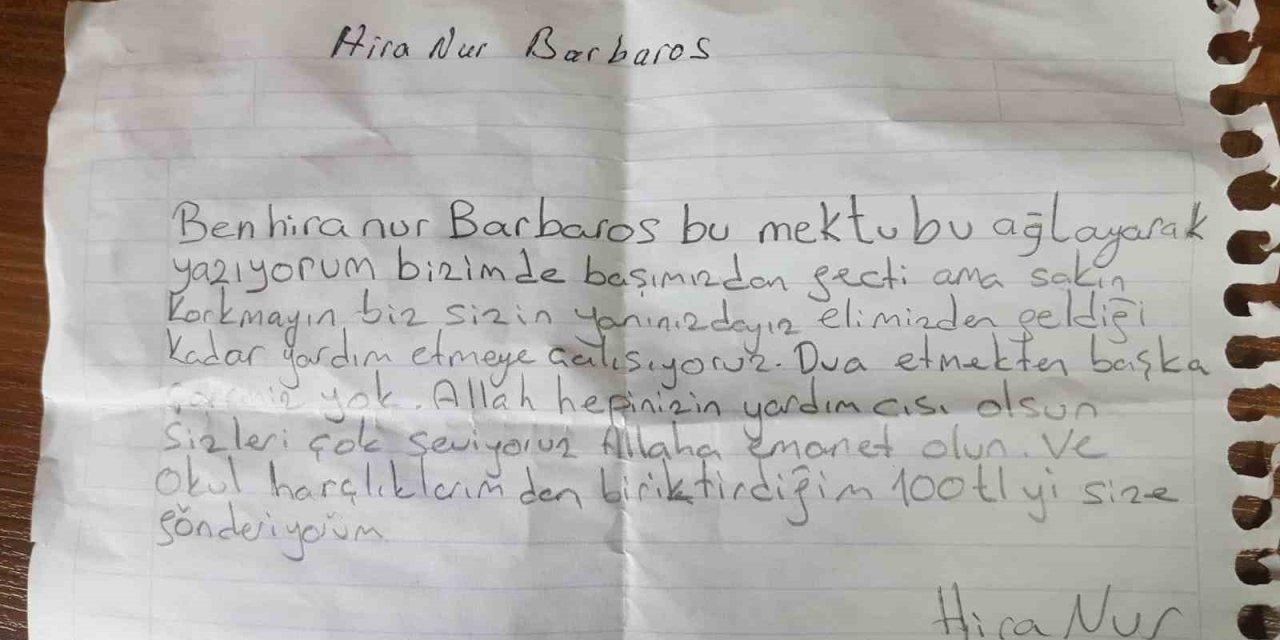 Hira Nur Barbaros
Ben hira nur Barbaros bu mektubu ağlayarak
yazıyorum bizimde başımızdan geçti ama sakın
korkmayın biz sizin yanınızdayız elimizden geldiği
kadar yardım etmeye çalışıyoruz. Dua etmekten başka
çaremiz yok. Allah hepinizin yardımcısı olsun
Sizleri çok seviyoruz Allaha emanet olun. Ve
Okul harçlıklarımdan biriktirdiğim 100tl yi size
gönderiyorum
Hira Nur